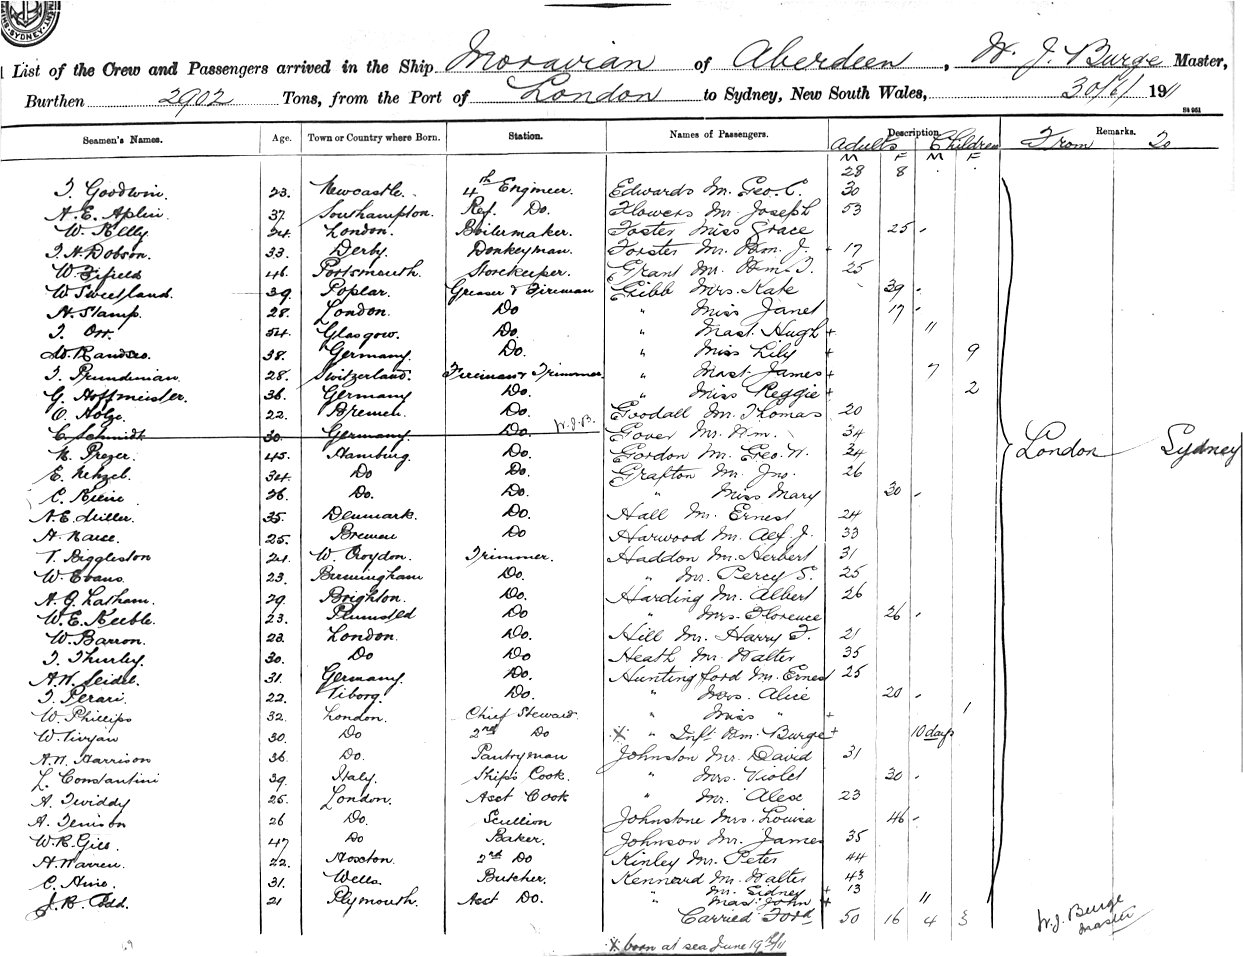 SYDNEY
List of the Crew and Passengers arrived in the Ship Moravian of Aberdeen, W. J. Burge Master,
Burthen 2902 Tons, from the Port of London to Sydney, New South Wales, 30/6/1911
Seamen's Names. Age. Town or Country where Born. Station. Names of Passengers. Description Remarks.
Adults Children From To
M F M F
28 8 . .
J. Goodwin. 23. Newcastle. 4th Engineer. Edwards Mr. Geo. C. 30
A. E. Aplin. 37. Southampton. Ref. Do. Flowers Mr. Joseph 53
W. Kelly 24. London. Boilermaker. Foster Miss Grace 25
J. H. Dobson. 33. Derby. Donkeyman. Forster Mr. Wm. J. + 17
W. Fifield 46. Portsmouth. Storekeeper. Grant Mr. Wm. J. 25
W. Sweetland. 39. Poplar. Greaser & Fireman Gibb Mrs. Kate 39
H. Stamp. 28. London. Do " Miss Janet 17
J. Orr. 54. Glasgow. Do. " Mast. Hugh + 11
38. Germany. Do. " Miss Lily + 9
28. Switzerland. Fireman & Trimmer " Mast. James + 7
G. Hoffmeister. 36. Germany Do. " Miss Reggie + 2
O. Holze. 22. Bremen. Do. Goodall Mr. Thomas 20
C. Schmidt 30. Germany. Do. W.J.B. Gover Mr. Wm. 34
Preyer. 45. Hamburg. Do. Gordon Mr. Geo. W. 24 London Sydney
E. 34. Do Do. Grafton Mr. Jno. 26
C. 26. Do. Do. " Miss Mary 30
A. E. Miller. 35. Denmark. Do. Hall Mr. Ernest 24
25. Bremen Do Harwood Mr. Alf. J. 33
T. Biggleston 21. W. Croydon. Trimmer. Haddon Mr. Herbert 31
W. Evans. 23. Birmingham Do. " Mr. Percy S. 25
A. G. Latham. 29. Brighton. Do. Harding Mr. Albert 26
W. E. Keeble. 23. Plumsted Do " Mrs. Florence 26
W. Barron. 28. London. Do. Hill Mr. Harry T. 21
J. Thurley. 30. Do Do Heath Mr. Walter 35
A. W. Seidel. 31. Germany. Do. Huntingford Mr. Ernest 25
J. Perari. 22. Viborg. Do. " Mrs. Alice 20
W. Phillips 32. London. Chief Steward " Miss " + 1
W. 30. Do 2nd Do X " Inft. Wm. Burge + 10 days
A. W. Harrison 36. Do. Pantryman Johnston Mr. David 31
L. Constantini 39. Italy. Ships Cook. " Mrs. Violet 30
A. Twiddy 25. London. Asst Cook " Mr. Alex 23
A. Tenison 26 Do. Scullion Johnstone Mrs. Louisa 46
W. R. Gill. 47 Do Baker. Johnson Mr. James 35
A. Warren. 22. Hoxton. 2nd Do Kinley Mr. Peter 44
C. 31. Wells. Butcher. Kennerd Mr. Walter 43
" Mr. Sidney + 13
J. R. 21 Plymouth. Asst Do. " Mast. John + 11
Carried Ford 50 16 4 3 W. J. Burge
Master
X born at sea June 19th/11